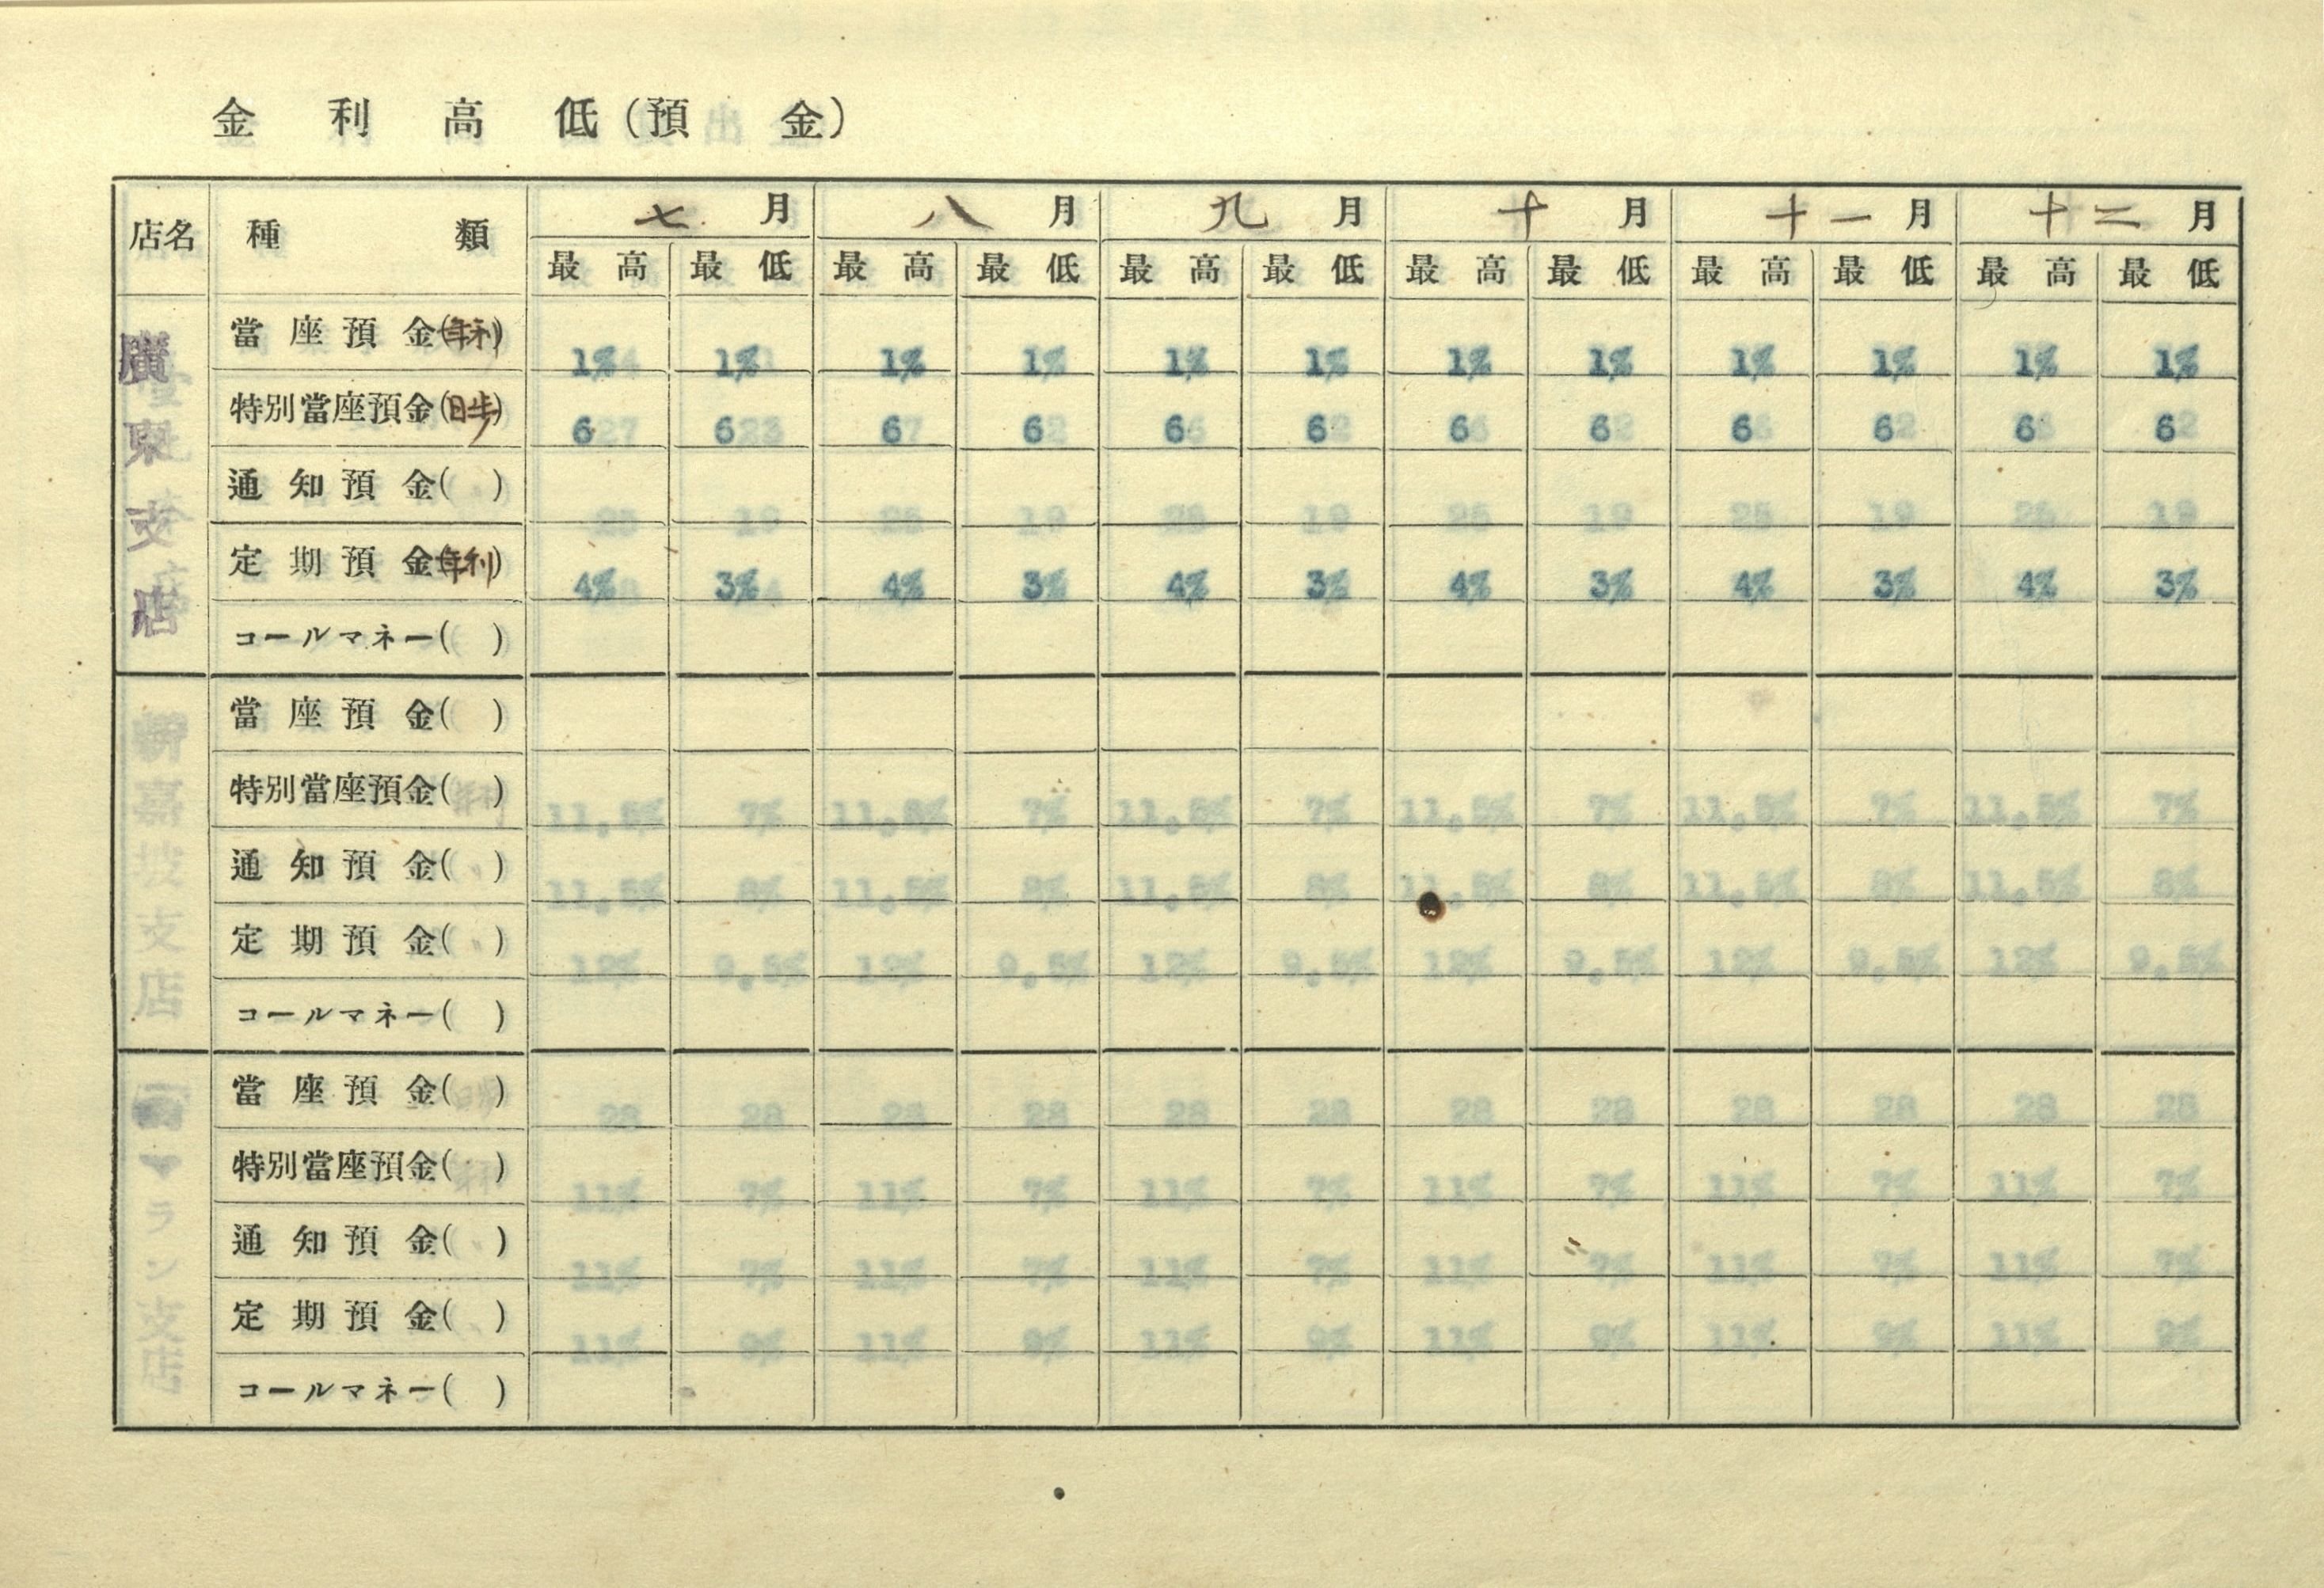 金利高低(預金)
店名 種類 七月 八月 九月 十月 十一月 十二月
最高 最低 最高 最低 最高 最低 最高 最低 最高 最低 最高 最低
廣東支店
當座預金(年利) 1% 1% 1% 1% 1% 1% 1% 1% 1% 1% 1% 1%
特別當座預金(日歩) 6 6 6 6 6 6 6 6 6 6 6 6
通知預金( )
定期預金(年利) 4% 3% 4% 3% 4% 3% 4% 3% 4% 3% 4% 3%
コールマネー( )
當座預金( )
特別當座預金( )
通知預金( )
定期預金( )
コールマネー( )
當座預金( )
特別當座預金( )
通知預金( )
定期預金( )
コールマネー( )